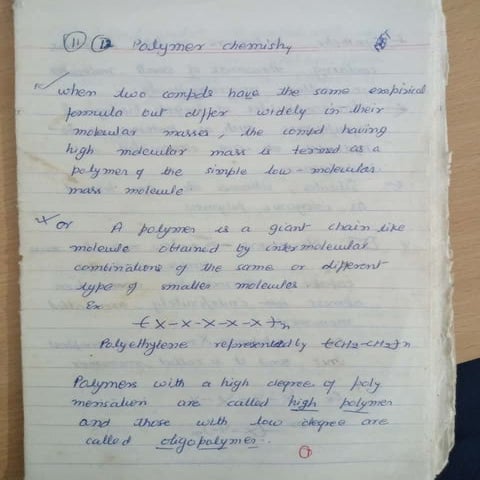 11 12 Polymer chemishy
when two compds have the same empirical
formula but differ widely in their
molecular masses, the compd having
high molecular mass is termed as a
polymer of the simple low-molecular
mass molecule
or A polymer is a giant chain like
molecule obtained by intermolecular
combinations of the same or different
type of smaller molecules
Ex
-(X-X-X-X-X)-n
Polyethylene represented by -(CH2-CH2)-n
Polymers with a high degree of poly
merisation are called high polymer
and those with low degree are
called oligopolymer.
1